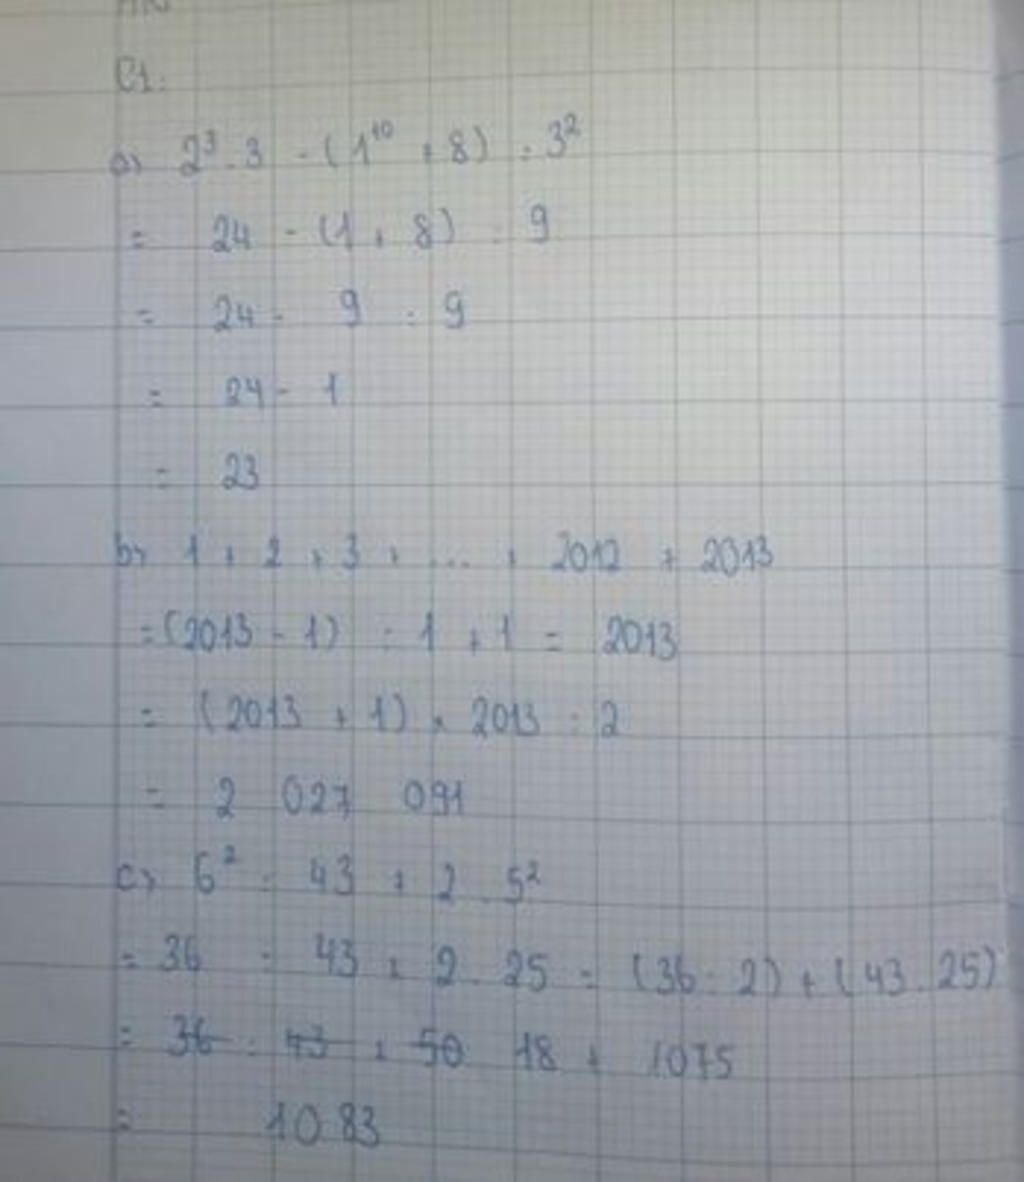 C1:
a) 2³ . 3 - (1¹⁰ + 8) : 3²
= 24 - (1 + 8) : 9
= 24 - 9 : 9
= 24 - 1
= 23
b) 1 + 2 + 3 + ... + 2012 + 2013
= (2013 - 1) : 1 + 1 = 2013
= (2013 + 1) x 2013 : 2
= 2 027 091
c) 6² : 43 + 2 . 5²
= 36 : 43 + 2 . 25 = (36 : 2) + (43 . 25)
= 36 : 43 + 50 18 + 1075
= 1083